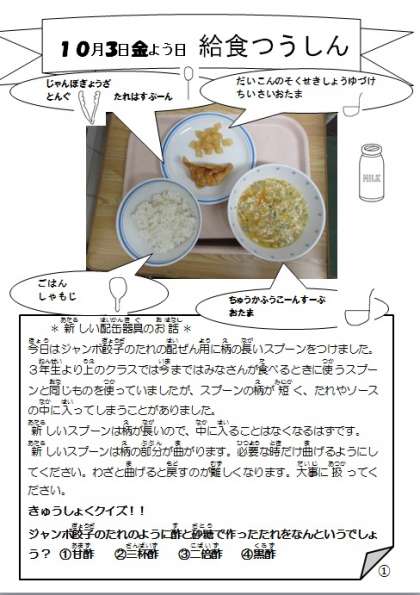 10月3日金よう日 給食つうしん
じゃんぼぎょうざ
とんぐ たれはすぷーん
だいこんのそくせきしょうゆづけ
ちいさいおたま
MILK
ごはん
しゃもじ
ちゅうかふうこーんすーぷ
おたま
＊新しい配缶器具のお話＊
今日はジャンボ餃子のたれの配ぜん用に柄の長いスプーンをつけました。
３年生より上のクラスでは今まではみなさんが食べるときに使うスプー
ンと同じものを使っていましたが、スプーンの柄が短く、たれやソース
の中に入ってしまうことがありました。
新しいスプーンは柄が長いので、中に入ることはなくなるはずです。
新しいスプーンは柄の部分が曲がります。必要な時だけ曲げるようにし
てください。わざと曲げると戻すのが難しくなります。大事に扱ってく
ださい。
きゅうしょくクイズ！！
ジャンボ餃子のたれのように酢と砂糖で作ったたれをなんというでしょ
う？ ①甘酢 ②三杯酢 ③二倍酢 ④黒酢
①